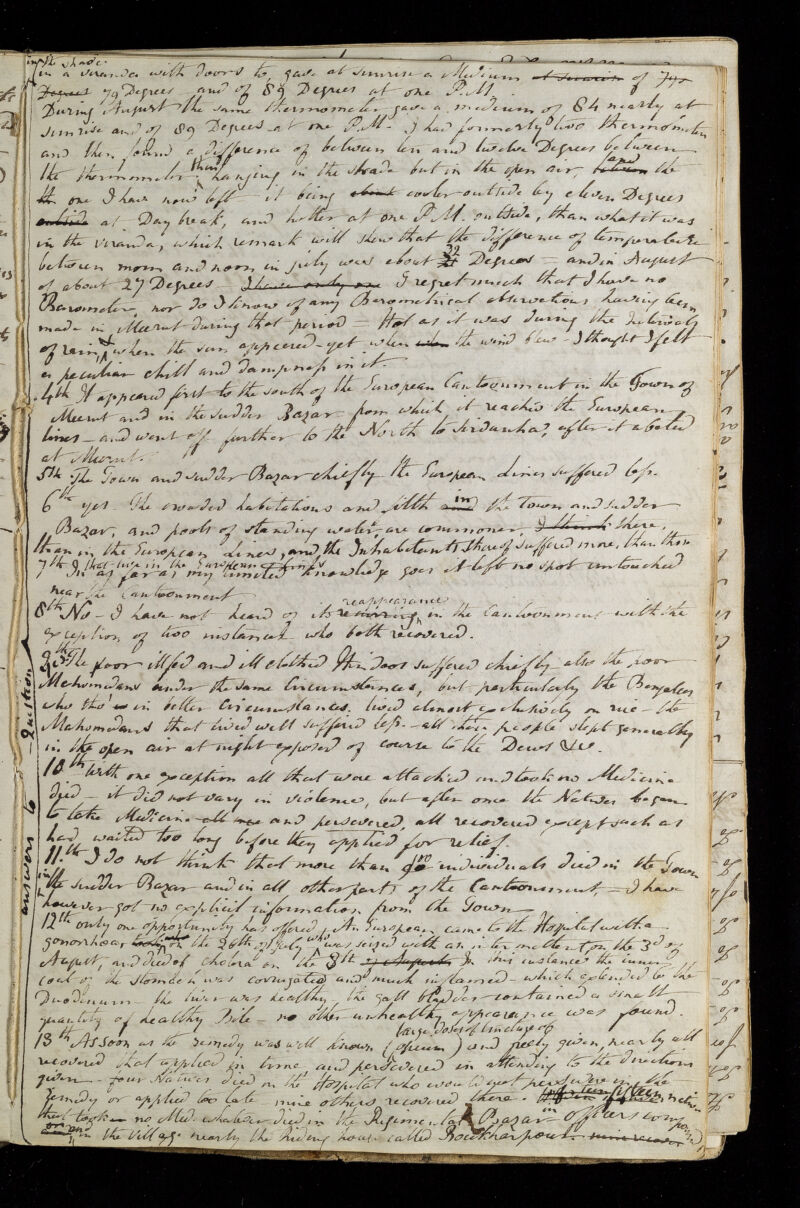 in the shade
in a veranda with doors to, gave at sunrise a Medium at sunrise of 
Degrees 79 Degrees and of 89 Degrees at one P.M.
During August the same thermometer gave a medium of 84 nearly at
sunrise and of 89 Degrees at one P.M. I had formerly two thermometers
and then found a difference of between ten and twelve Degrees between
the thermometer then hanging in the shade but in the open air, between and the
the one I have now left it being about cooler outside by eleven Degrees
outside at Day break, and hotter at one P.M. outside, than what it was
in the veranda, which remark will shew that the difference of temperature
between morn and noon in july was about 32 Degrees = and in August
of about 27 Degrees I have only one I regret much that I have no
Barometer, nor do I know of any Barometrical observations having been
made in Meerut during that period = Hot as it was during the Intervals
of rain, & when the sun appeered - yet when when the wind blew - I thought I felt
a peculiar chill and dampness in it.
4th It appeared first to the south of the European Cantoonment in the Town of
Meerut and in the Sudder Bazar from which it reached the European
lines - and went off further to the North to Sirdanha, after it abated
at Meerut.
5th The Town and Sudder Bazar chiefly the European Lines suffered less.
6th yes - The crowded habitations and filth and in the town and sudder
Bazar, and pools of standing water, are commoner, I think there,
than in the European Lines, and the Inhabitants thereof suffered more, than those
that live in the European Lines
7th In as far as my limited knowledge goes it left no spot untouched
near the Cantoonment
8th No - I have not heard of its returning reappearance in the Cantoonment with the
exception of two instances who both recovered.
9th The poor illfed and ill clothed Hindoos suffered chiefly also the poor
Mahomedans under the same Circumstances, but particularly the Bengalees
who tho' in better Circumstances lived almost exclusively on rice - the
Mahomedans that lived well suffered less - all these people slept generally
in the open air at night exposed of course to the Dews &c.
10th With one exception all that were attacked and took no Medicine
died - it did not vary in violence, but after once the Natives began
to take Medicine all and persevered, all recovered except such as
had waited too long before they applied for relief.
11th I do not think that more than individuals died in the Town
in the Sudder Bazar and in all other parts of the Cantoonment = I have
however got no explicit information from the Town
12th only one opportunity has offered, An European came to the Hospital with a
gonorrhoea, on the 26th of July who was seized with an intermittent on the 3d of
August, and died of cholera on the 8th of August. In this instance the inner
coat of the Stomach was corrugated and much inflamed - which extended to the
Duodenum - the liver was healthy, the gall bladder contained a small
quantity of healthy Bile - no other unhealthy appearance was found.
13th As soon as the remedy was well known (large doses of tincture of opeum) and freely given, nearly all
recovered that applied in time and persevered in attending to the directions
given - four Natives died in the Hospital who would not persevere in the
remedy or applied too late nine others recovered there. fifteen natives
that took no Med. whatever died in the Regimental Bazar in officers compound
and in the Village nearly the Riding house called
answers to Question